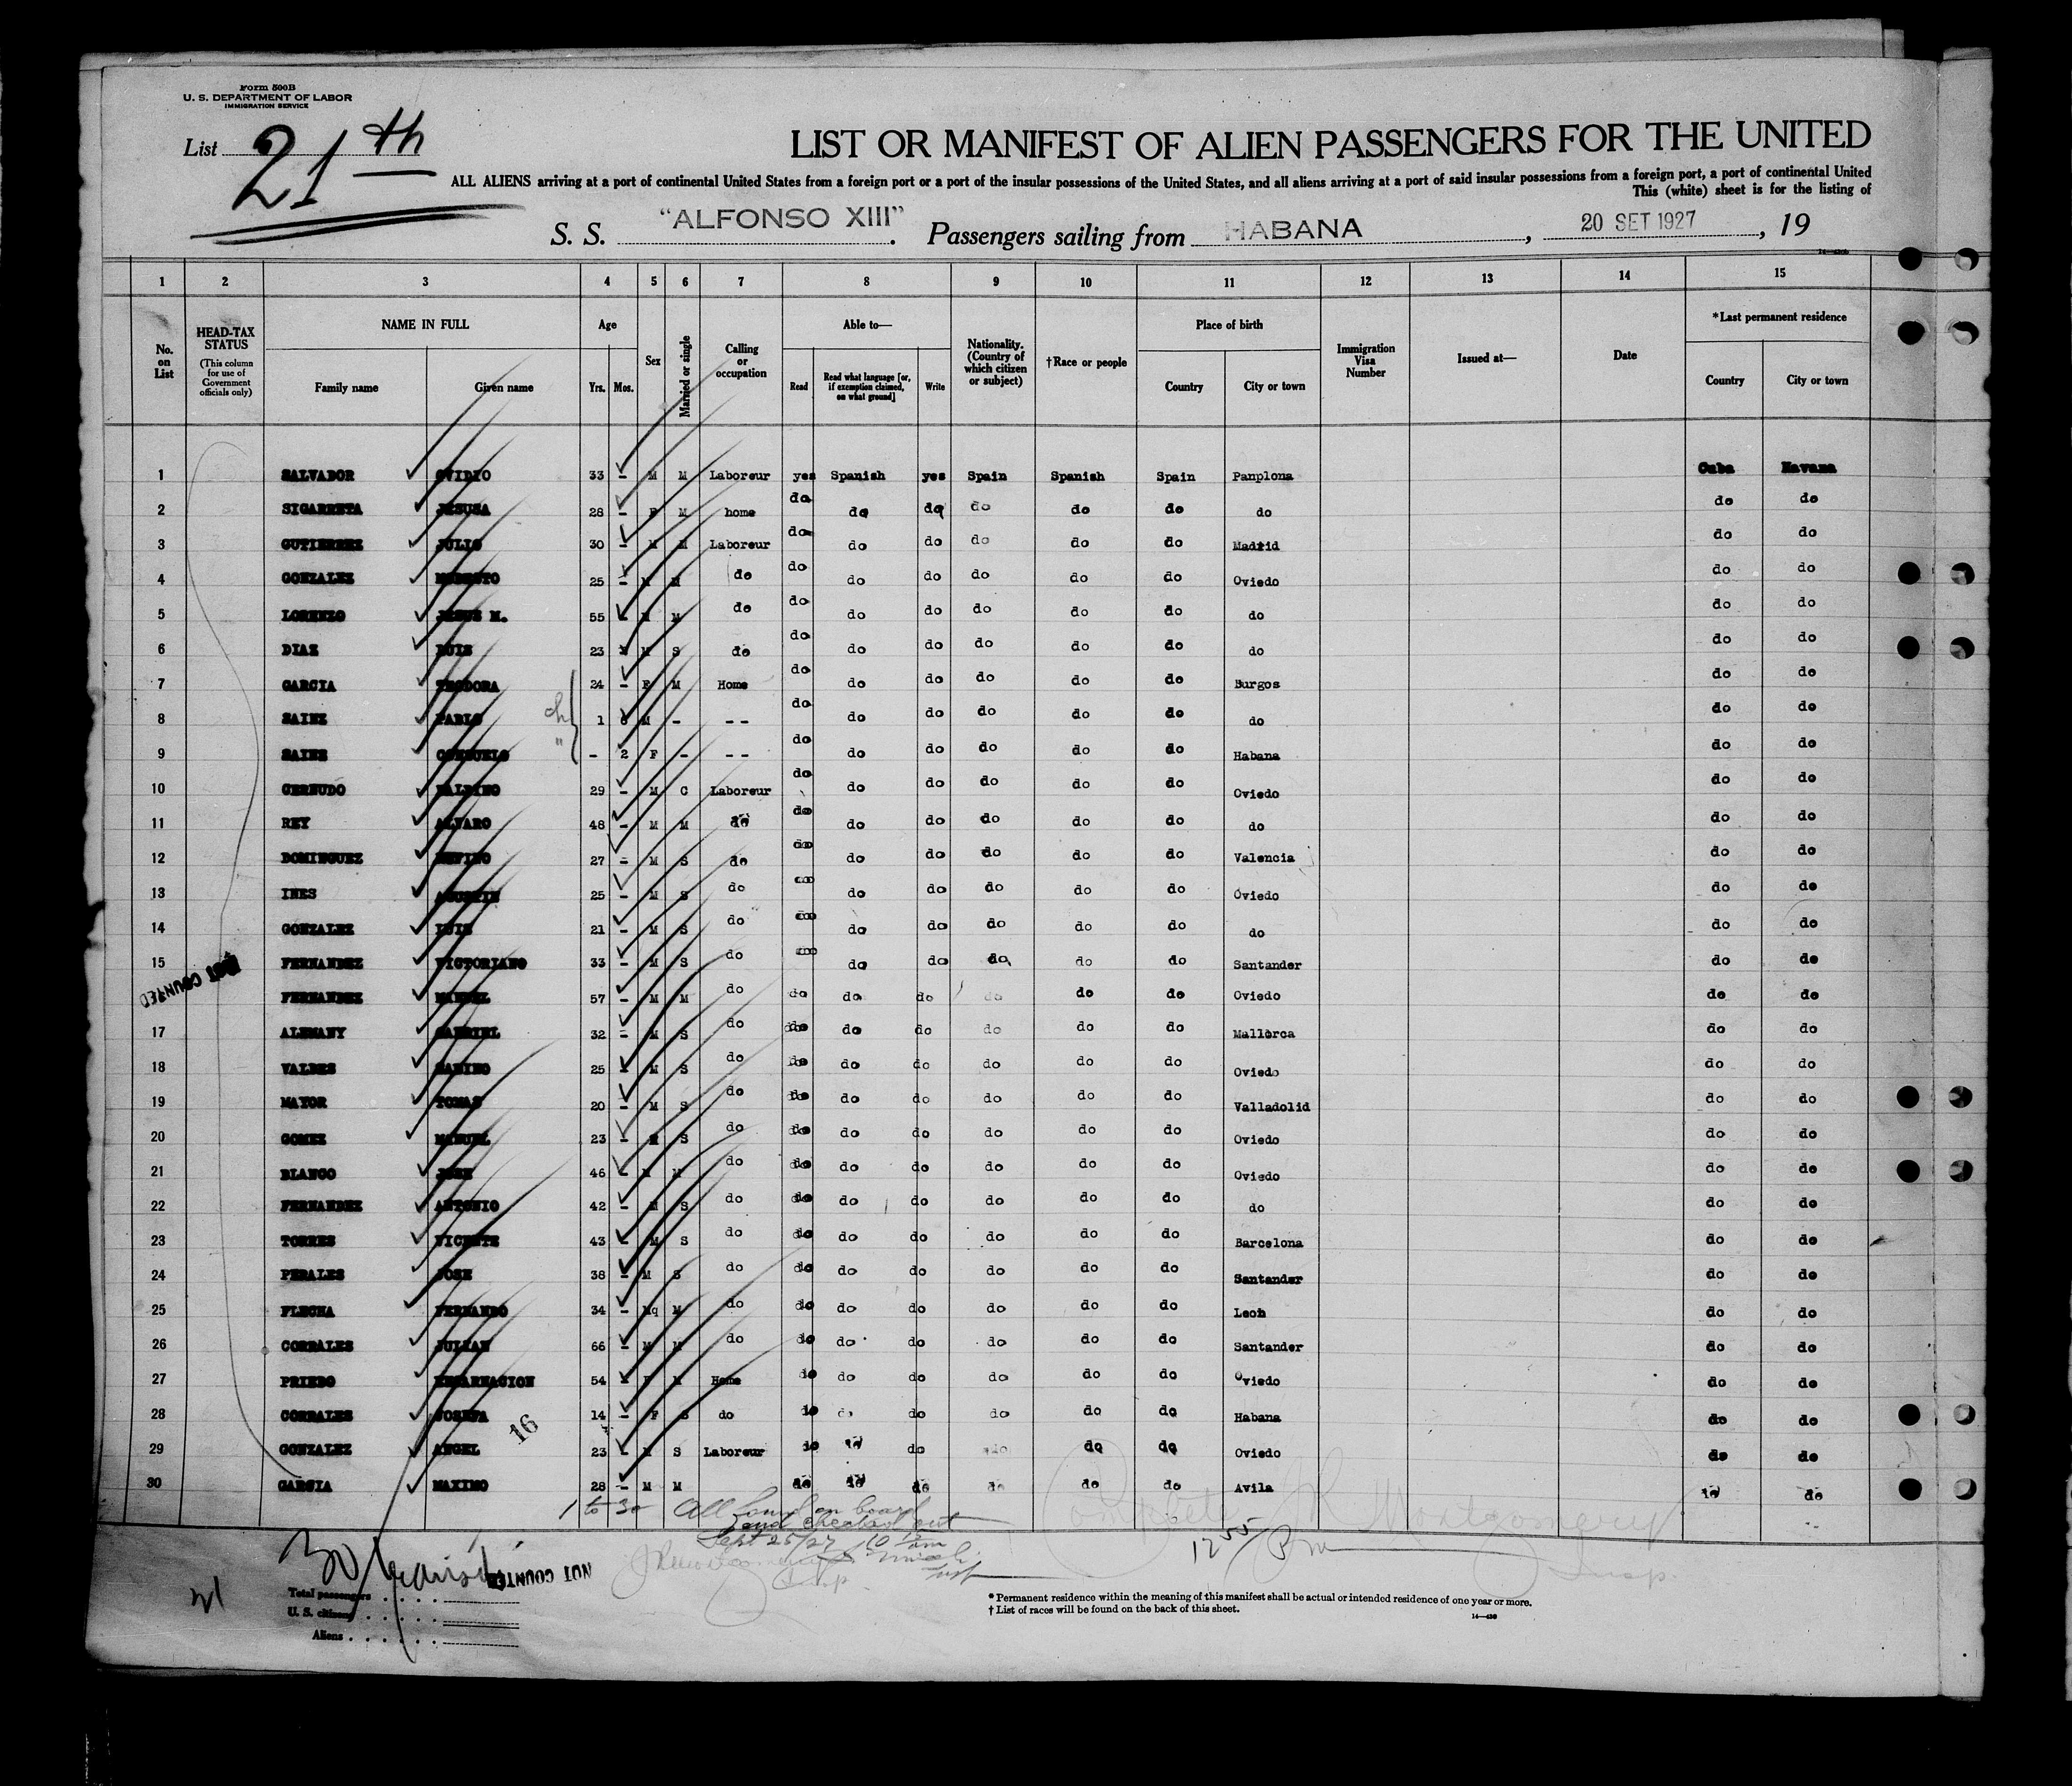 Form 500B
U. S. DEPARTMENT OF LABOR
IMMIGRATION SERVICE
List 21th
LIST OR MANIFEST OF ALIEN PASSENGERS FOR THE UNITED
ALL ALIENS arriving at a port of continental United States from a foreign port or a port of the insular possessions of the United States, and all aliens arriving at a port of said insular possessions from a foreign port, a port of continental United
This (white) sheet is for the listing of
S. S. "ALFONSO XIII". Passengers sailing from HABANA, 20 SET 1927, 19
1 2 3 4 5 6 7 8 9 10 11 12 13 14 15
No. on List HEAD-TAX STATUS (This column for use of Government officials only) NAME IN FULL Family name Given name Age Yrs. Mos. Sex Married or single Calling or occupation Able to— Read Read what language [or, if exemption claimed, on what ground] Write Nationality. (Country of which citizen or subject) †Race or people Place of birth Country City or town Immigration Visa Number Issued at— Date *Last permanent residence Country City or town
1 SALVADOR OVIDIO 33 - M M Laboreur yes Spanish yes Spain Spanish Spain Panplona Cuba Havana
2 SIGARRETA JESUSA 28 - F M home do do do do do do do do do
3 GUTIERREZ JULIO 30 - M M Laboreur do do do do do do Madrid do do
4 GONZALEZ MODESTO 25 - M M do do do do do do do Oviedo do do
5 LORENZO JESUS M. 55 - M M do do do do do do do do do do
6 DIAZ LUIS 23 - M S do do do do do do do do do do
7 GARCIA TEODORA 24 - F M Home do do do do do do Burgos do do
8 SAINZ PABLO 1 6 M - - - do do do do do do do do do
9 SAINZ CONSUELO - 2 F - - - do do do do do do Habana do do
10 CERNUDO BALBINO 29 - M C Laboreur do do do do do do Oviedo do do
11 REY ALVARO 48 - M M do do do do do do do do do do
12 DOMINGUEZ 27 - M S do do do do do do do Valencia do do
13 INES AGUSTIN 25 - M S do do do do do do do Oviedo do do
14 GONZALEZ LUIS 21 - M S do do do do do do do do do do
15 FERNANDEZ VICTORIANO 33 - M S do do do do do do do Santander do do
NOT COUNTED
FERNANDEZ MANUEL 57 - M M do do do do do do do Oviedo do do
17 ALEMANY GABRIEL 32 - M S do do do do do do do Mallorca do do
18 VALDES SABINO 25 - M S do do do do do do do Oviedo do do
19 MAYOR TOMAS 20 - M S do do do do do do do Valladolid do do
20 GOMEZ MANUEL 23 - M S do do do do do do do Oviedo do do
21 BLANCO JOSE 46 - M M do do do do do do do Oviedo do do
22 FERNANDEZ ANTONIO 42 - M S do do do do do do do do do do
23 TORRES VICENTE 43 - M S do do do do do do do Barcelona do do
24 PERALES JOSE 38 - M S do do do do do do do Santander do do
25 FLECHA FERNANDO 34 - Mq M do do do do do do do Leon do do
26 CORRALES JULIAN 66 - M M do do do do do do do Santander do do
27 PRIEDO ENCARNACION 54 - F M Home do do do do do do Oviedo do do
28 CORRALES JOSEFA 14 - F S do do do do do do do Habana do do
16
29 GONZALEZ ANGEL 23 - M S Laboreur do do do do do do Oviedo do do
30 GARCIA MAXIMO 28 - M M do do do do do do Avila do do
1 to 30 All found on board
and checked out
Sept 25/27 10 15 am
Complete JR Montgomery
12 55 Pm Insp.
30
NOT COUNTED
Total passengers
U. S. citizens
Aliens
* Permanent residence within the meaning of this manifest shall be actual or intended residence of one year or more.
† List of races will be found on the back of this sheet.
14—430